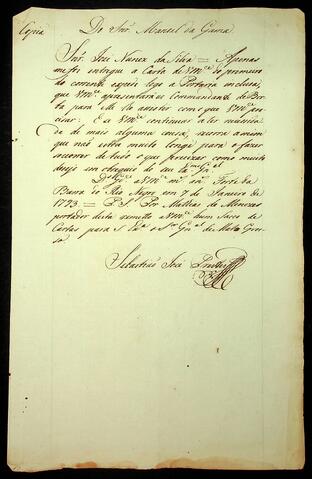 Copia
Do Snr. Manuel da Gama
Snr. Joze Nunez da Silva = Apenas
me foi entregue a Carta de Vmce. do primeiro
do corrente expedi logo a Portaria incluza,
que Vmce. aprezentará ao Commandante de
para lhe asistir com o que Vmce.
cizar: E a Vmce. continuar a ter
de de mais alguma couza, a mim
que não estou muito longe para o fazer
socorrer de tudo o que precizar como muito
dezejo em obzequio de
Ds. gde. a Vmce. ms. ans. Forte da
Barra do Rio Negro em 7 de Janeiro de
1773 = P. S. Por Mathias de Menezes
portador desta remetto a Vmce. hum Saco de
Cartas para S. de Mato Gros-
so
Sebastião José